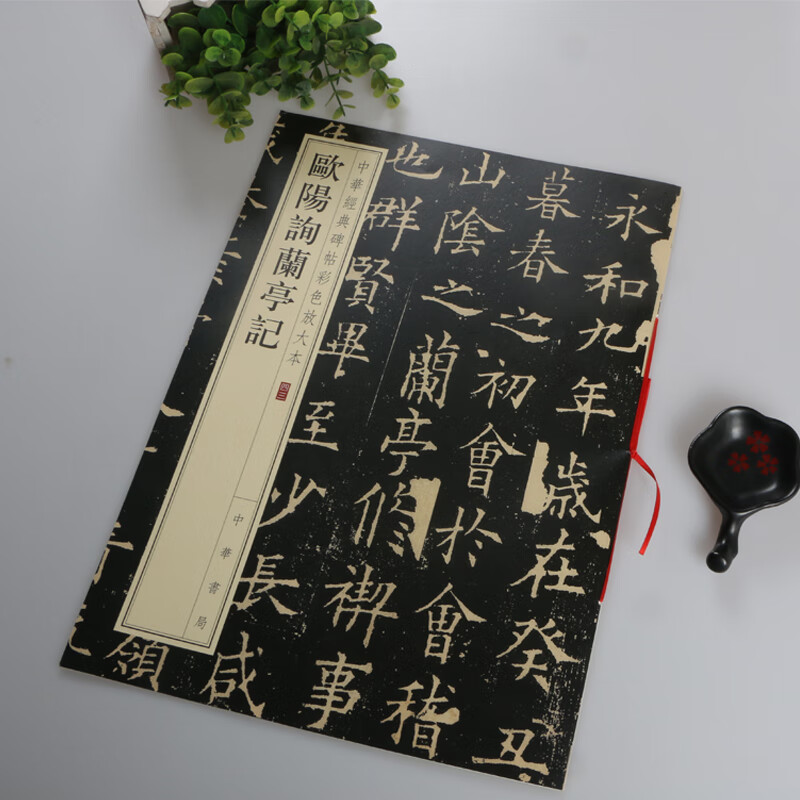 永和九年歲在癸丑
暮春之初會於會稽
山陰之蘭亭修禊事
也群賢畢至少長咸
領
中華經典碑帖彩色放大本
歐陽詢蘭亭記
四三
中華書局